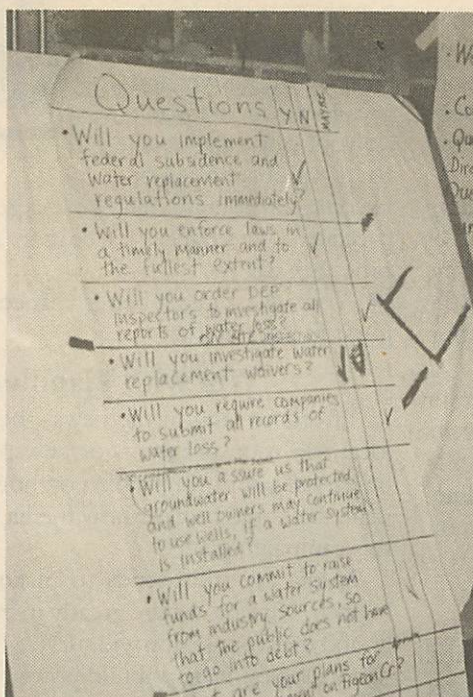 Questions Y N MAYBE
• Will you implement
federal subsidence and
water replacement
regulations immediately?
• Will you enforce laws in
a timely manner and to
the fullest extent?
• Will you order DEP
inspectors to investigate all
reports of water loss?
• Will you investigate water
replacement waivers?
• Will you require companies
to submit all records of
water loss?
• Will you assure us that
groundwater will be protected,
and well owners may continue
to use wells, if a water system
is installed?
• Will you commit to raise
funds for a water system
from industry sources, so
that the public does not have
to go into debt?
are your plans for
on Pigeon Cr?